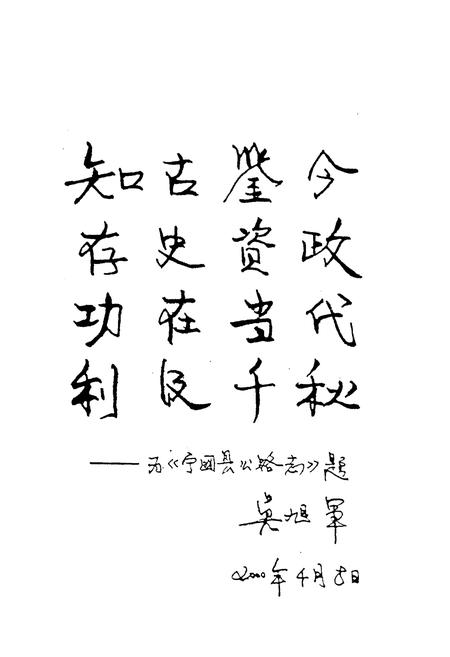 知古鉴今
存史资政
功在当代
利及千秋
——为《宁国县公路志》题
吴旭军
2000年4月8日